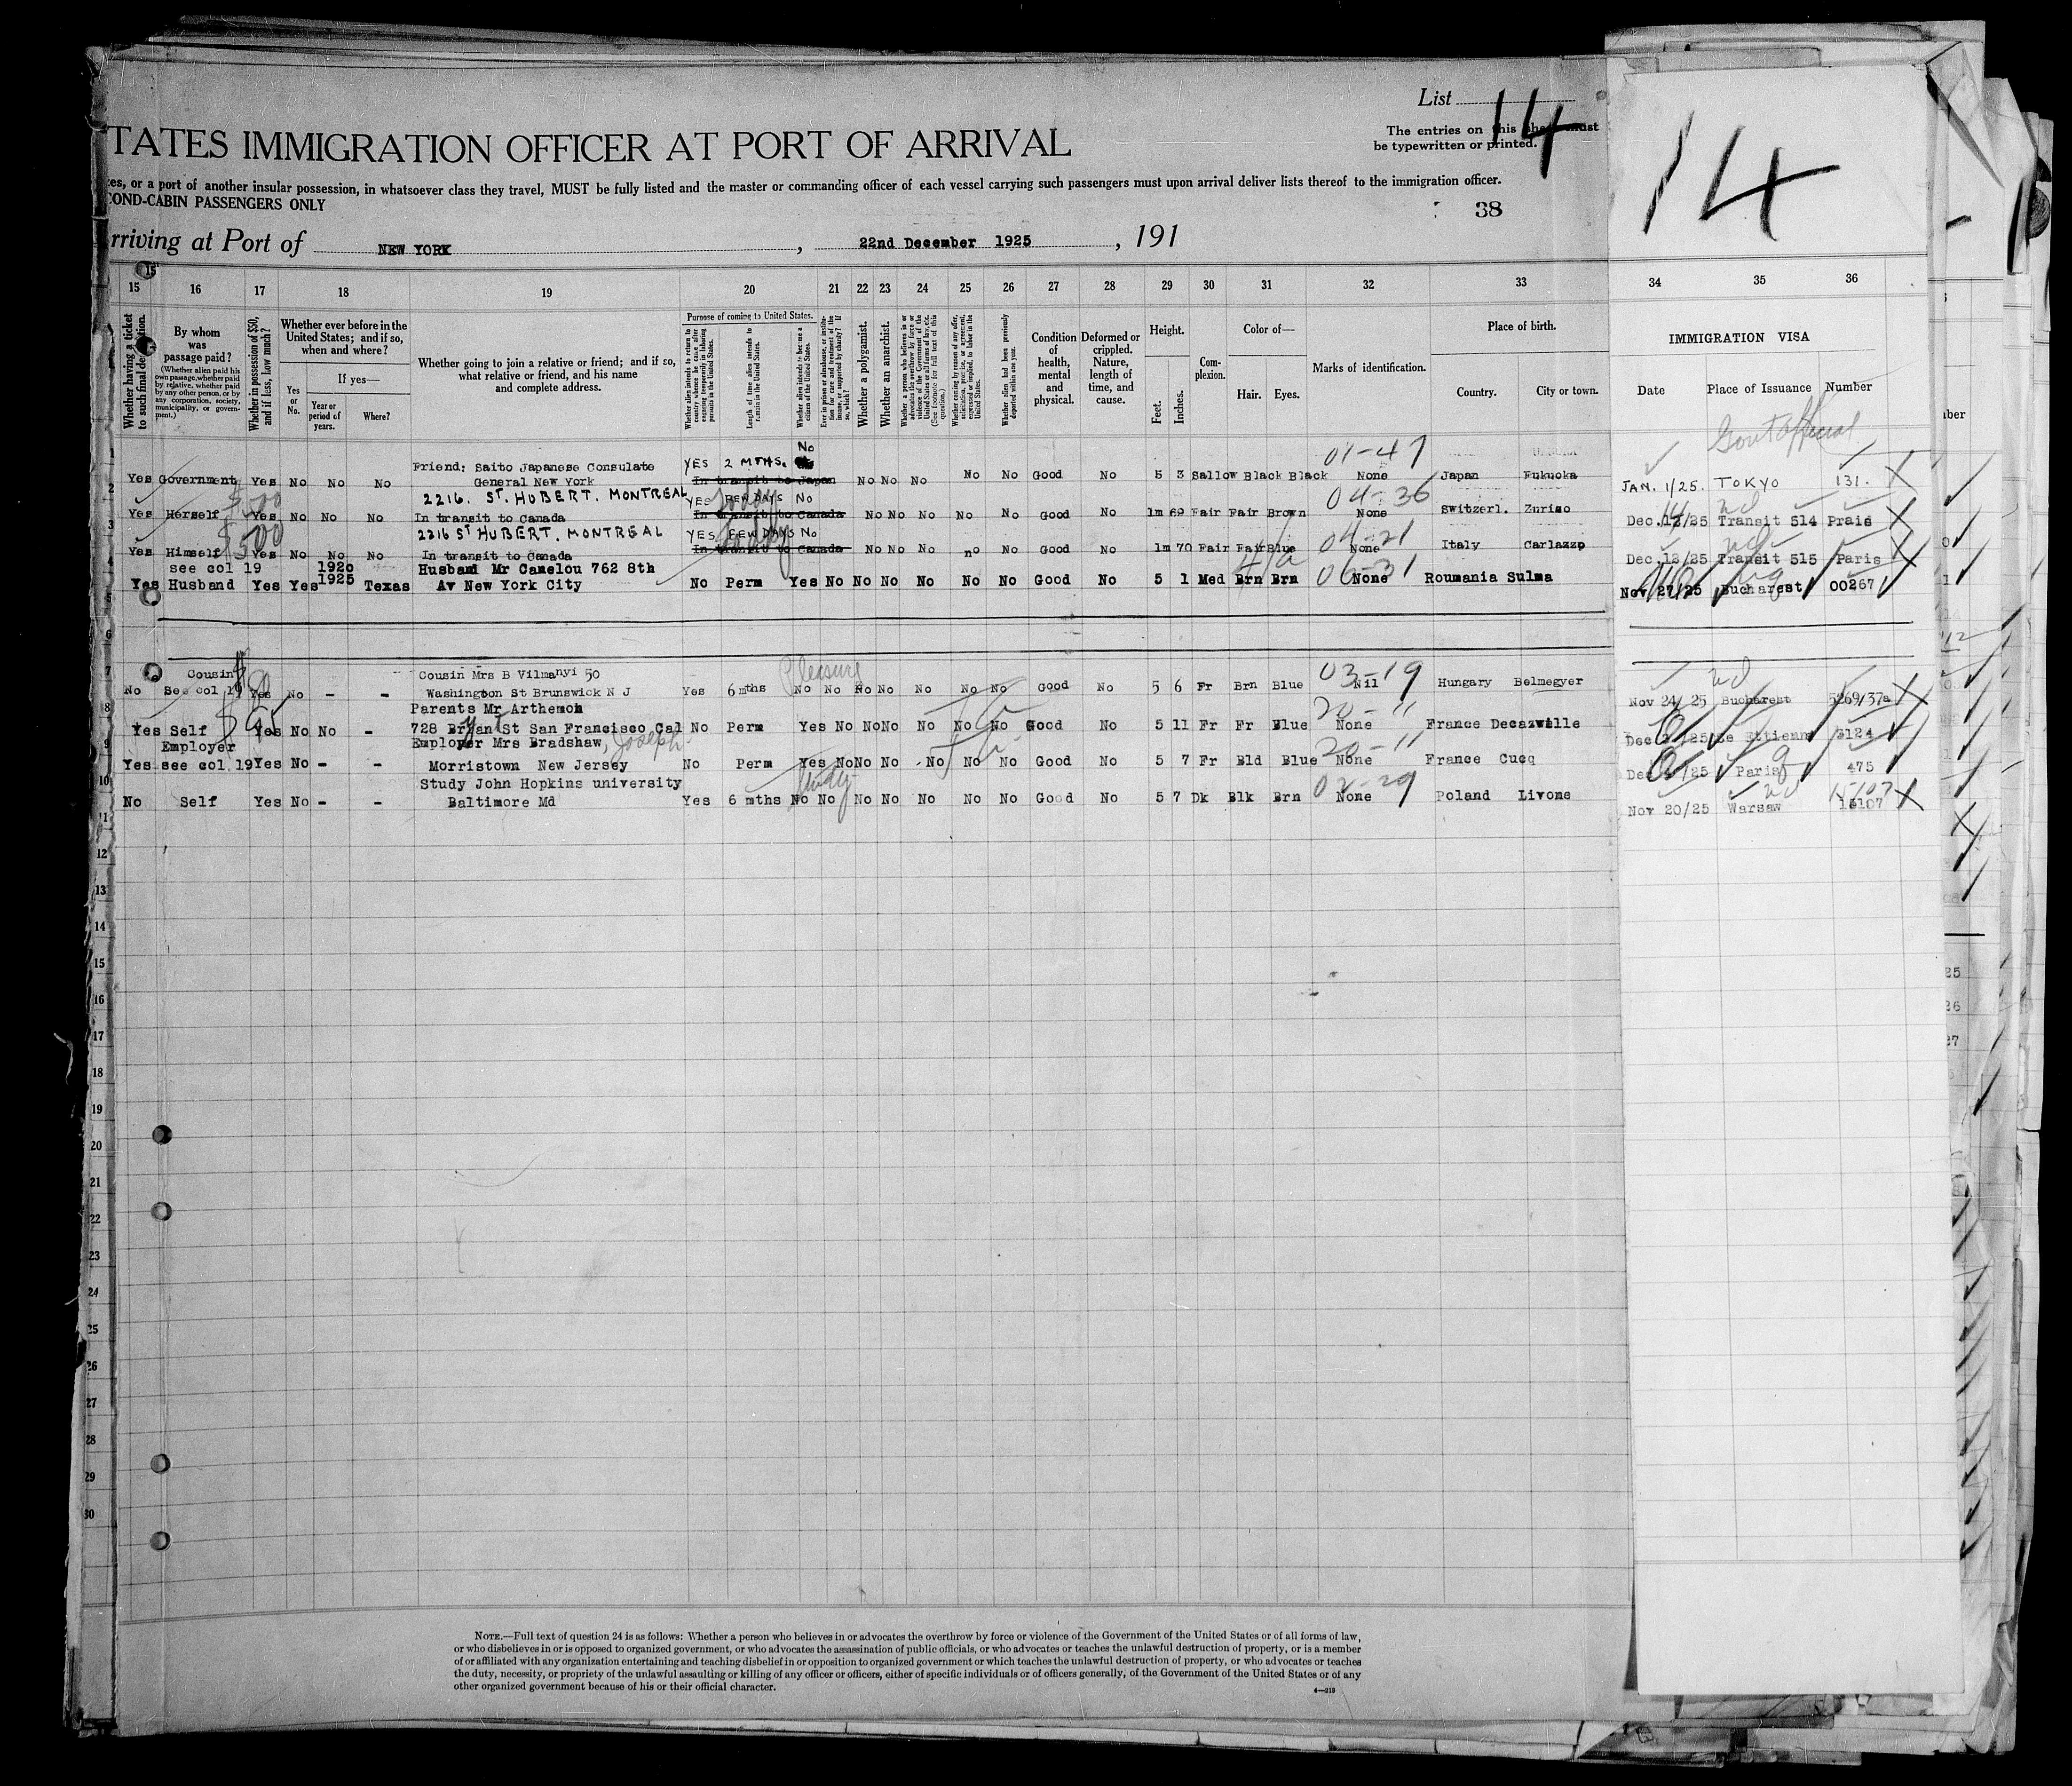 List 14
TATES IMMIGRATION OFFICER AT PORT OF ARRIVAL
The entries on this sheet must
be typewritten or printed.
es, or a port of another insular possession, in whatsoever class they travel, MUST be fully listed and the master or commanding officer of each vessel carrying such passengers must upon arrival deliver lists thereof to the immigration officer.
COND-CABIN PASSENGERS ONLY
38
14
rriving at Port of NEW YORK, 22nd December 1925, 191
15 16 17 18 19 20 21 22 23 24 25 26 27 28 29 30 31 32 33 34 35 36
Whether having a ticket to such final destination.
By whom was passage paid?
(Whether alien paid his own passage, whether paid by relative, whether paid by any other person, or by any corporation, society, municipality, or government.)
Whether in possession of $50, and if less, how much?
Whether ever before in the United States; and if so, when and where?
Yes or No.
If yes—
Year or period of years.
Where?
Whether going to join a relative or friend; and if so, what relative or friend, and his name and complete address.
Purpose of coming to United States.
Length of time alien intends to remain in the United States.
Whether alien intends to become a citizen of the United States.
Whether a polygamist.
Whether an anarchist.
Condition of health, mental and physical.
Deformed or crippled. Nature, length of time, and cause.
Height.
Feet. Inches.
Complexion.
Color of—
Hair. Eyes.
Marks of identification.
Place of birth.
Country. City or town.
IMMIGRATION VISA
Date Place of Issuance Number
Govt Official
No
01-47
Friend: Saito Japanese Consulate YES 2 MTHS.
Yes Government Yes No No No General New York In transit to Japan No No No No No Good No 5 3 Sallow Black Black None Japan Fukuoka JAN. 1/25. TOKYO 131.
$500 2216. ST. HUBERT. MONTREAL YES FEW DAYS No 04-36
Yes Herself Yes No No No In transit to Canada In transit to Canada No No No No No Good No 1m 69 Fair Fair Brown None Switzerl. Zuriso Dec.12/25 Transit 514 Prais
$500 2216 ST HUBERT. MONTREAL YES FEW DAYS No 04-21
Yes Himself Yes No No No In transit to Canada In transit to Canada No No No no No Good No 1m 70 Fair Fair Blue None Italy Carlazzo Dec.12/25 Transit 515 Paris
see col 19 1920 Husband Mr Camelou 762 8th
Yes Husband Yes Yes 1925 Texas Av New York City No Perm Yes No No No No No No Good No 5 1 Med Brn Brn None Roumania Sulma Nov 27/25 Bucharest 00267
06-31
Cousin Cousin Mrs B Vilmanyi 50 Pleasure 03-19
No See col 19 Yes No - - Washington St Brunswick N J Yes 6mths No No No No No No No Good No 5 6 Fr Brn Blue Nil Hungary Belmegyer Nov 24/25 Bucharest 5269/37a
Parents Mr Arthemon 20-11
Yes Self $95 Yes No No - 728 Bryant St San Francisco Cal No Perm Yes No No No No No No Good No 5 11 Fr Fr Blue None France Decazville 3124
Employer Employer Mrs Bradshaw, Joseph 20-11
Yes see col 19 Yes No - - Morristown New Jersey No Perm Yes No No No No No No Good No 5 7 Fr Bld Blue None France Cucq Paris 475
Study John Hopkins university Study 02-29 15107
No Self Yes No - - Baltimore Md Yes 6 mths No No No No No No No Good No 5 7 Dk Blk Brn None Poland Livone Nov 20/25 Warsaw
2
3
4
5
6
7
8
9
10
11
12
13
14
15
16
17
18
19
20
21
22
23
24
25
26
27
28
29
30
NOTE.—Full text of question 24 is as follows: Whether a person who believes in or advocates the overthrow by force or violence of the Government of the United States or of all forms of law,
or who disbelieves in or is opposed to organized government, or who advocates the assassination of public officials, or who advocates or teaches the unlawful destruction of property, or is a member
of or affiliated with any organization entertaining and teaching disbelief in or opposition to organized government or which teaches the unlawful destruction of property, or who advocates or teaches
the duty, necessity, or propriety of the unlawful assaulting or killing of any officer or officers, either of specific individuals or of officers generally, of the Government of the United States or of any
other organized government because of his or their official character.
4—213